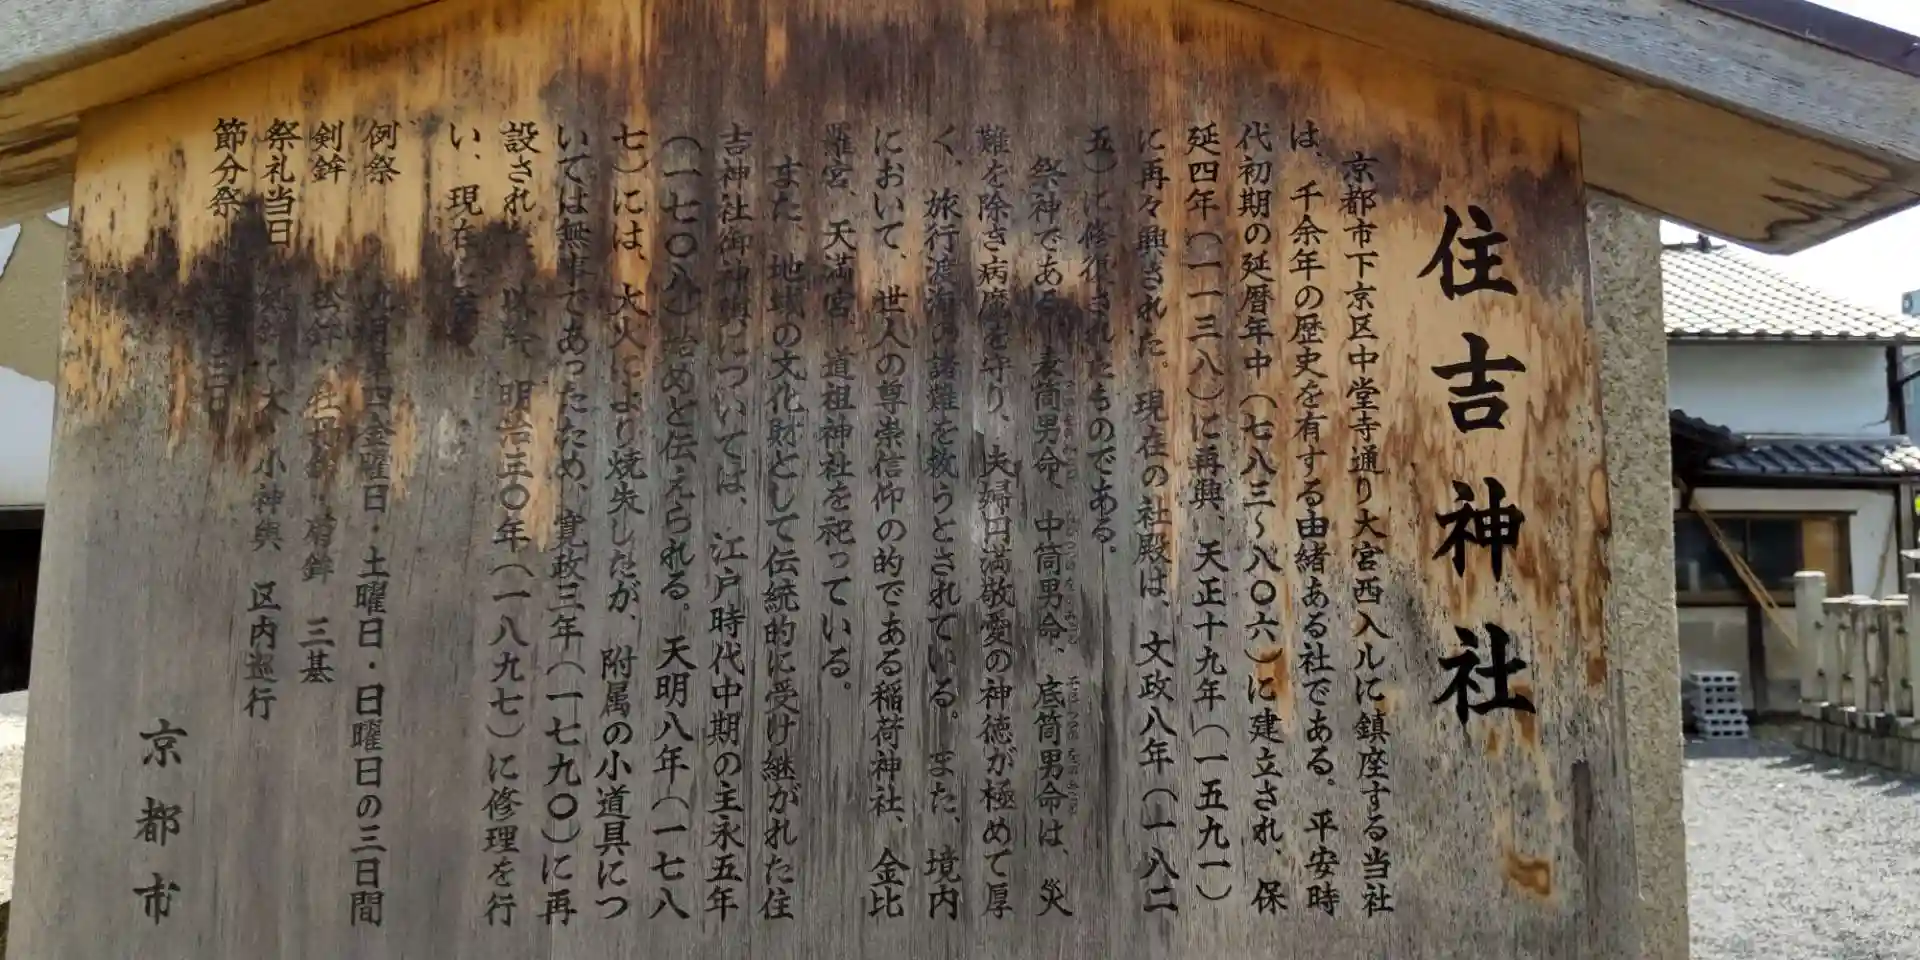 住吉神社
京都市下京区中堂寺通り大宮西入ルに鎮座する当社
は、千余年の歴史を有する由緒ある社である。平安時
代初期の延暦年中（七八三～八〇六）に建立され、保
延四年（一一三八）に再興、天正十九年（一五九一）
に再々興された。現在の社殿は、文政八年（一八二
五）に修復されたものである。
祭神である表筒男命、中筒男命、底筒男命は、災
難を除き病魔を守り、夫婦円満敬愛の神徳が極めて厚
く、旅行渡海の諸難を救うとされている。また、境内
において、世人の尊崇信仰の的である稲荷神社、金比
羅宮、天満宮、道祖神社を祀っている。
また、地域の文化財として伝統的に受け継がれた住
吉神社御神輿については、江戸時代中期の主永五年
（一七〇八）始めと伝えられる。天明八年（一七八
七）には、大火により焼失したが、附属の小道具につ
いては無事であったため、寛政三年（一七九〇）に再
設され 明治三〇年（一八九七）に修理を行
い、現在
例祭 四金曜日・土曜日・日曜日の三日間
剣鉾 松鉾・牡丹鉾・菊鉾 三基
祭礼当日 剣鉾・大・小神輿 区内巡行
節分祭 三日
京都市